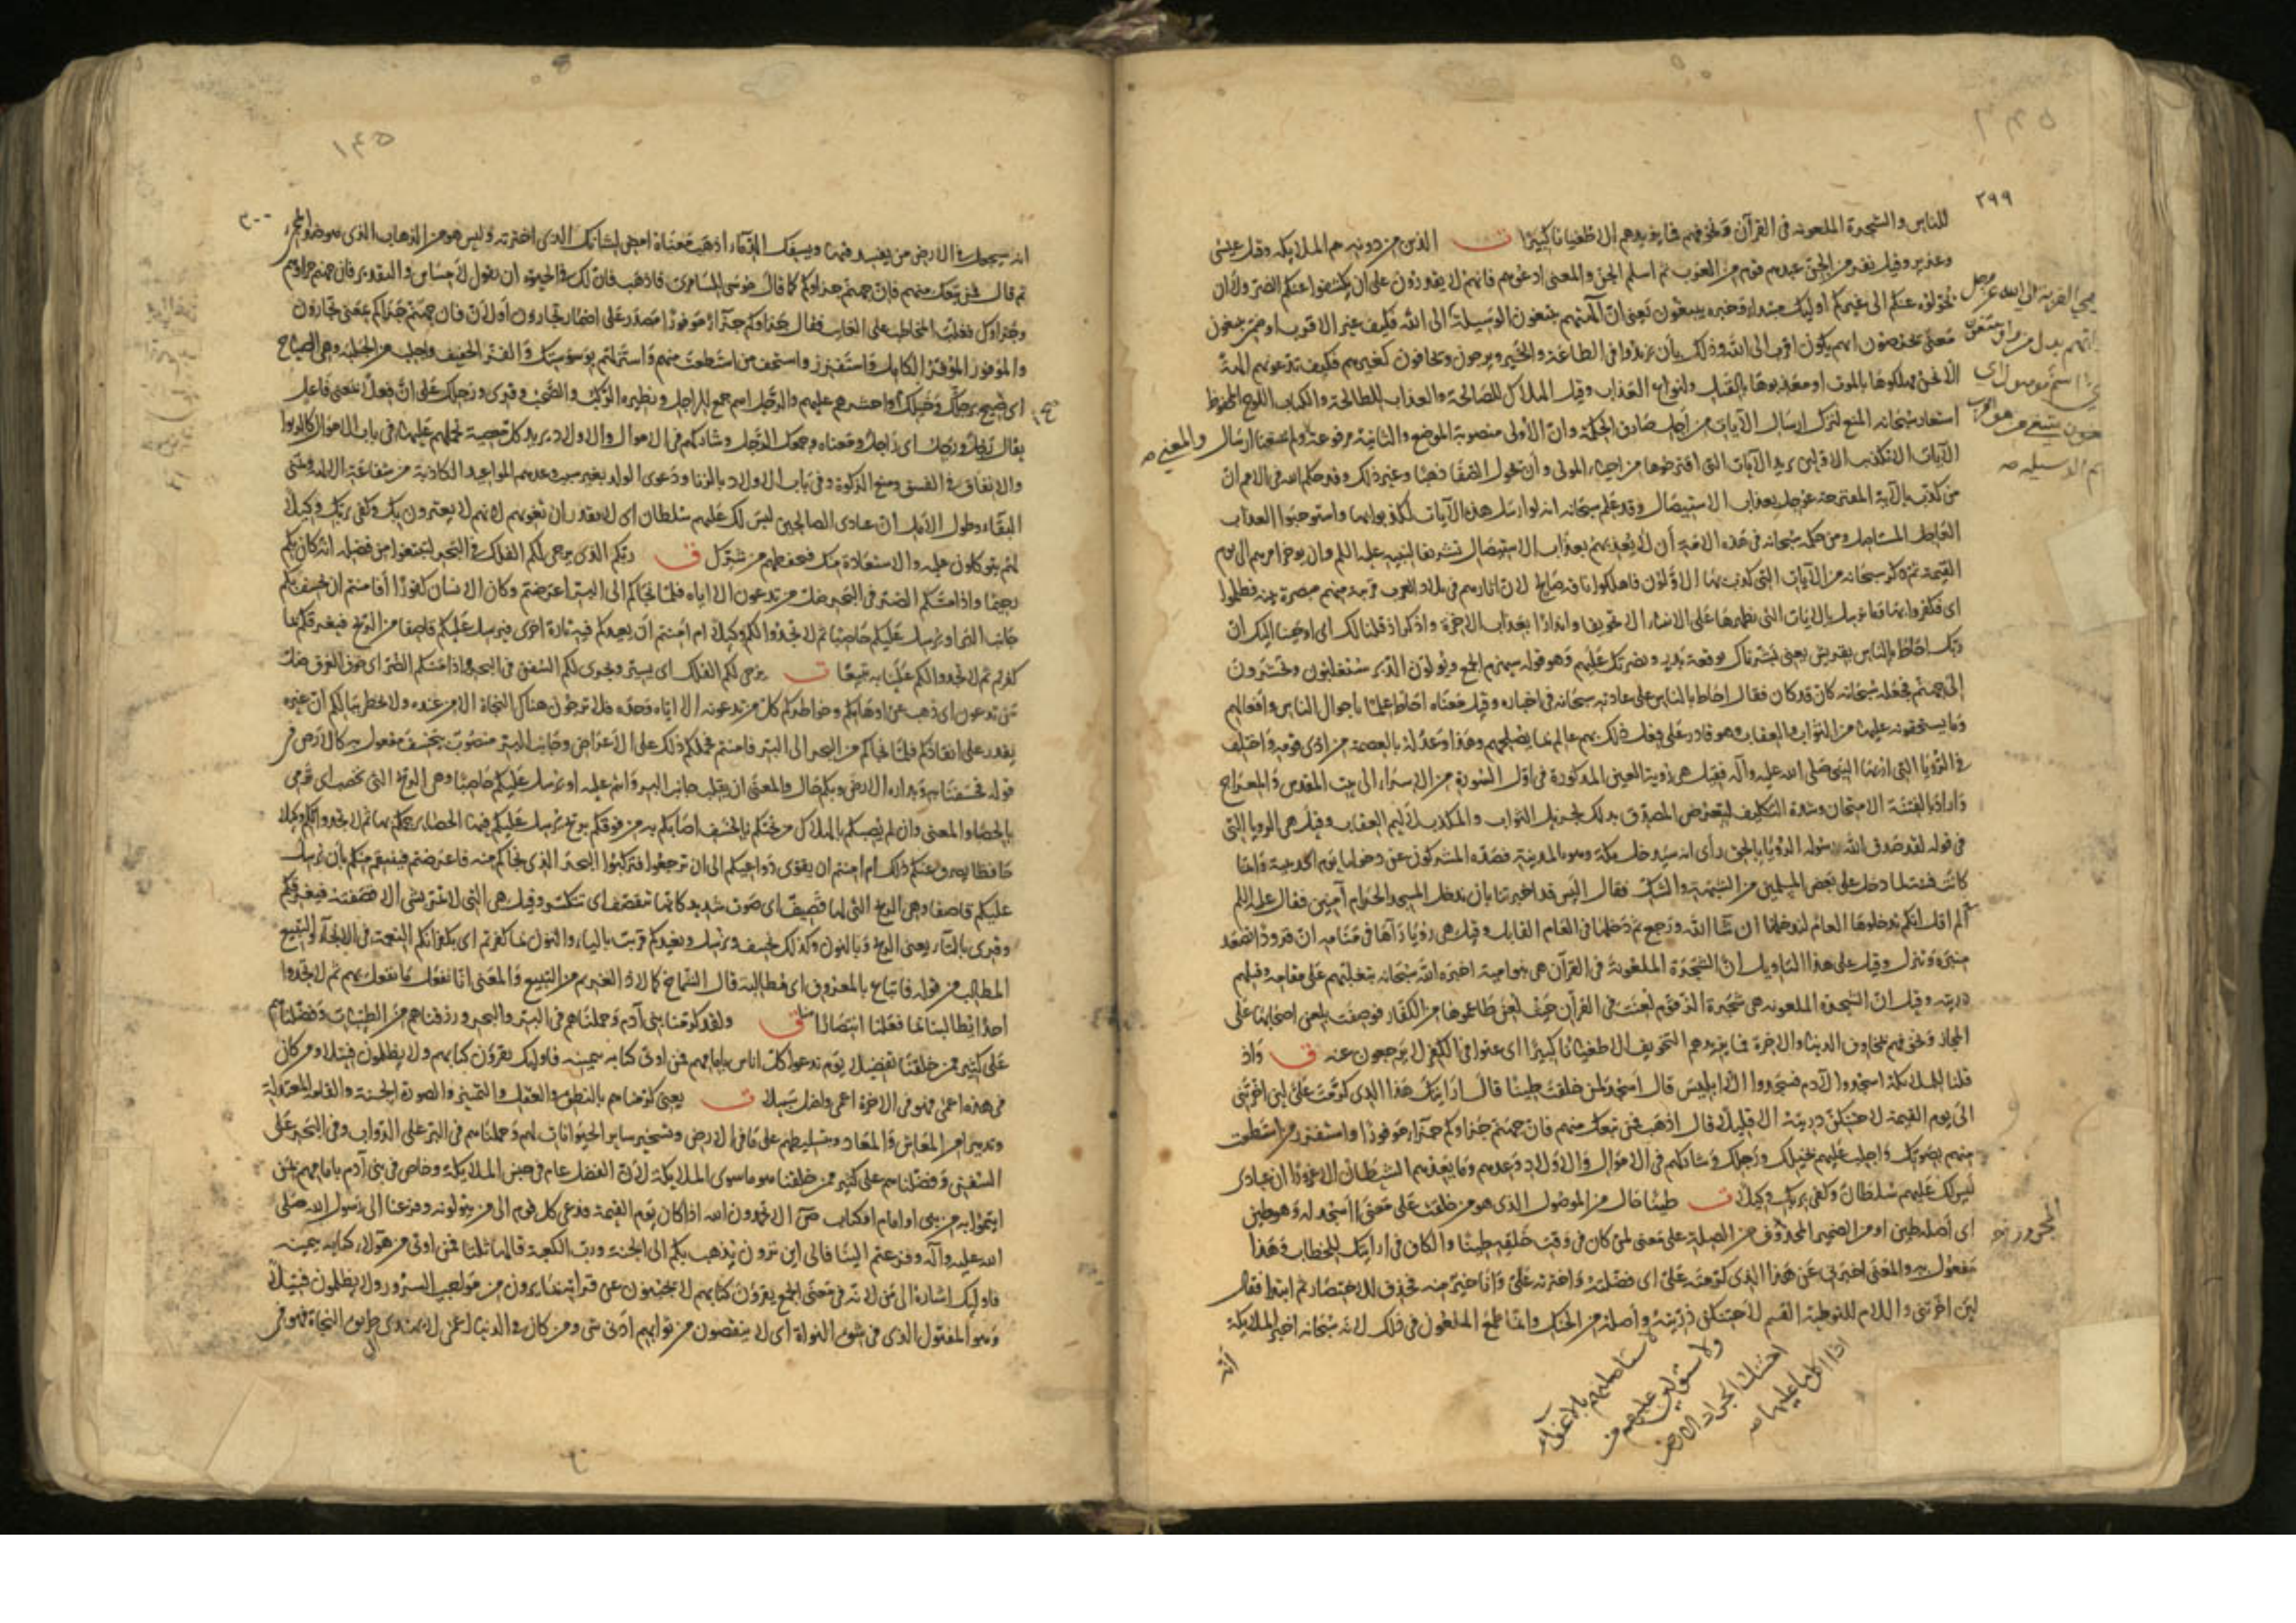 ٢٩٩
للناس والشجرة الملعونة في القرآن ونخوفهم فما يزيدهم الا طغيانا كبيرا ت الذين من دونه هم الملائكة وقيل عيسى
وعزير وقيل نفر من الجن عبدهم قوم من العرب ثم اسلم الجن والمعنى ادعوهم فانهم لا يقدرون على ان يكشفوا عنكم الضر ولا ان
يحولوه عنكم الى غيركم اوليك مبتداء وخبره يبتغون يعنى ان آلهتهم يبتغون الوسيلة الى الله فكيف بغير الاقرب او ضمن يبتغون
معنى يحرصون ايهم يكون اقرب الى الله وذلك بان يزدادوا في الطاعة والخير ويرجون ويخافون كغيرهم فكيف تدعونهم آلهة
الا نحن مهلكوها بالموت او معذبوها بالقتل وانواع العذاب وقيل الهلاك للصالحة والعذاب للطالحة والكتاب اللوح المحفوظ
استعار سبحانه المنع لترك ارسال الآيات من اجل صارف الحكمة وان الأولى منصوبة الموضع والثانية مرفوعة وما منعنا ارسال
الآيات الا تكذيب الاولين يريد الآيات التي اقترحوها من احياء الموتى وأن يحول الصفا ذهبا وغير ذلك وقد حكم الله في الامم ان
من كذب بالآية المقترحة عوجل بعذاب الاستيصال وقد علم سبحانه انه لو ارسل هذه الآيات لكذبوا بها واستوجبوا العذاب
العاجل المستاصل ومن حكمه سبحانه في هذه الامة أن لا يعذبهم بعذاب الاستيصال تشريفا لنبيه عليه السلم وان يوخر امرهم الى يوم
القيمة ثم ذكر سبحانه من الآيات التي كذب بها الاولون فاهلكوا ناقة صالح لان اثارهم في بلاد العرب قريبة منهم مبصرة بينة فظلموا
اى فكفروا بها وما نرسل بالايات التي نظهرها على الانبياء الا تخويفا وانذارا بعذاب الاخرة واذكر اذ قلنا لك اى اوحينا اليك ان
ربك احاط بالناس بقريش يعنى بشرناك بوقعة بدر وبنصرتك عليهم وهو قوله سيهزم الجمع ويولون الدبر ستغلبون وتحشرون
الى جهنم فجعله سبحانه كان قد كان فقال احاط بالناس على عادته سبحانه في اخباره وقيل معناه احاط علما باحوال الناس وافعالهم
وما يستحقونه عليها من الثواب والعقاب وهو قادر على فعل ذلك بهم عالم بما يصلحهم وهذا وعد له بالعصمة من اذى قومه واختلف
في الرؤيا التي اريها النبى صلى الله عليه وآله فقيل هي رؤية العين المذكورة في اول السورة من الاسراء الى بيت المقدس والمعراج
واراد بالفتنة الامتحان وشدة التكليف ليتعرض المصدق بذلك لجزيل الثواب والمكذب لاليم العقاب وقيل هي الرويا التي
في قوله لقد صدق الله رسوله الرؤيا بالحق رأى انه سيدخل مكة وهو بالمدينة فصده المشركون عن دخولها يوم الحديبية وانما
كانت فتنة لما دخل على بعض المسلمين من الشبهة والشك فقال اليس قد اخبرتنا بان ندخل المسجد الحرام آمنين فقال عليه السلم
ألم اقل انكم تدخلوها العام لتدخلنها ان شا الله ورجع ثم دخلها في العام القابل وقيل هي رؤيا رآها في منامه ان قرودا تصعد
منبره وتنزل وقيل على هذا التاويل ان الشجرة الملعونة في القرآن هي بنو امية اخبره الله سبحانه بتغلبهم على مقامه وقتلهم
ذريته وقيل ان الشجرة الملعونة هي شجرة الزقوم لعنت في القرآن حيث لعن طاعموها من الكفار فوصفت بلعن اصحابها على
المجاز ونخوفهم بمخاوف الدنيا والاخرة فما يزيدهم التخويف الا طغيانا كبيرا اى عتوا في الكفر لا يرجعون عنه ق واذ
قلنا للملائكة اسجدوا لآدم فسجدوا الا ابليس قال أسجد لمن خلقت طينا قال ارايتك هذا الذى كرمت على لين اخرتنى
الى يوم القيمة لاحتنكن ذريته الا قليلا قال اذهب فمن تبعك منهم فان جهنم جزاوكم جزاء موفورا واستفزز من استطعت
منهم بصوتك واجلب عليهم بخيلك ورجلك وشاركهم في الاموال والاولاد وعدهم وما يعدهم الشيطان الا غرورا ان عبادى
ليس لك عليهم سلطان وكفى بربك وكيلا ت طينا حال من الموصول الذى هو من خلقت على معنى أاسجد له وهو طين
اى اصله طين او من الضمير المحذوف من الصلة على معنى لمن كان في وقت خلقه طينا والكاف في ارايتك للخطاب وهذا
مفعول به والمعنى اخبرنى عن هذا الذى كرمته على اى فضلته واخترته على وانا خير منه فحذف للاختصار ثم ابتدا فقال
لين اخرتنى واللام للتوطية القسم لاحتنكن ذريته واصله من الحنك وانما طمع الملعون في ذلك لانه سبحانه اخبر الملايكة
انه
والمعنى صح
لاستاصلنهم بالاغواء
ولاستولين عليهم من
احتنك الجراد الارض
اذا اكل ما عليها صح
١٤٥
٣٠٠
انه سيجعل في الارض من يفسد فيها ويسفك الدماء اذهب معناه امض لشانك الذى اخترته وليس هو من الذهاب الذى هو ضد المجىء
ثم قال فمن تبعك منهم فان جهنم جزاوكم كما قال موسى للسامرى فاذهب فان لك في الحيوة ان تقول لا مساس والتقدير فان جهنم جزاوهم
وجزاوك فغلب المخاطب على الغايب فقال جزاوكم جزاء موفورا مصدر على اضمار تجازون أو لأن فان جهنم جزاكم بمعنى تجازون
والموفور الموفر الكامل واستفزز واستخف من استطعت منهم واستزلهم بوسوستك والفز الخفيف واجلب من الجلبة وهى الصياح
اى فصح برجلك وخيلك واحشرهم عليهم والرجل اسم جمع للراجل ونظيره الركب والصحب وقرى ورجلك على ان فعلا بمعنى فاعل
يقال رجل ورجل اى راجل ومعناه وجمعك الرجل وشاركهم في الاموال والاولاد يريد كل معصية تحملهم عليها في باب الاموال كالربوا
والانفاق في الفسق ومنع الزكوة وفي باب الاولاد بالزنا ودعوى الولد بغير سبب وعدهم المواعيد الكاذبة من شفاعة الالهة وتمنى
البقاء وطول الامل ان عبادى الصالحين ليس لك عليهم سلطان اى لا تقدر ان تغويهم لانهم لا يغترون بك وكفى بربك وكيلا
لهم يتوكلون عليه والاستعاذة منك فيحفظهم من شرك ق ربكم الذى يزجى لكم الفلك في البحر لتبتغوا من فضله انه كان بكم
رحيما واذا مسكم الضر في البحر ضل من تدعون الا اياه فلما نجاكم الى البر اعرضتم وكان الانسان كفورا أفامنتم ان يخسف بكم
جانب البر او يرسل عليكم حاصبا ثم لا تجدوا لكم وكيلا ام امنتم أن يعيدكم فيه تارة اخرى فيرسل عليكم قاصفا من الريح فيغرقكم بما
كفرتم ثم لا تجدوا لكم علينا به تبيعا ت يزجى لكم الفلك اى يسير ويجرى لكم السفن في البحر واذا مسكم الضر اى خوف الغرق ضل
من تدعون اى ذهب عن اوهامكم وخواطركم كل من تدعونه الا اياه وحده فلا ترجون هناك النجاة الا من عنده ولا يخطر ببالكم ان غيره
يقدر على انقاذكم فلما نجاكم من البحر الى البر فامنتم فحملكم ذلك على الاعراض وجانب البر منصوب بيخسف مفعول به كالارض في
قوله فخسفنا به وبداره الارض وبكم حال والمعنى ان يقلب جانب البر وانتم عليه او يرسل عليكم حاصبا وهى الريح التي تحصب اى ترمى
بالحصبا والمعنى وان لم يصبكم بالهلاك من تحتكم بالخسف اصابكم به من فوقكم بريح يرسل عليكم فيها الحصباء يرجمكم بها ثم لا تجدوا لكم وكيلا
حافظا يصرف عنكم ذلك ام امنتم ان يقوى دواعيكم الى ان ترجعوا فتركبوا البحر الذى نجاكم منه فاعرضتم فينتقم منكم بأن يرسل
عليكم قاصفا وهى الريح التي لها قصيف اى صوت شديد كانها تتقصف اى تتكسر وقيل هى التي لا تمر بشى الا قصفته فيغرقكم
وقرى بالتاء يعنى الريح وبالنون وكذلك يخسف ويرسل ويعيدكم قريت بالياء والنون بما كفرتم اى بكفرانكم النعمة في الانجاء والتبيع
المطالب من قوله فاتباع بالمعروف اى مطالبة قال الشماخ كما لاذ الغريم من التبيع والمعنى انا نفعل ما نفعل بهم ثم لا تجدوا
احدا يطالبنا بما فعلنا انتصارا منا ق ولقد كرمنا بنى آدم وحملناهم في البر والبحر ورزقناهم من الطيبات وفضلناهم
على كثير ممن خلقنا تفضيلا يوم ندعوا كل اناس بامامهم فمن اوتى كتابه بيمينه فاوليك يقرؤن كتابهم ولا يظلمون فتيلا ومن كان
في هذه اعمى فهو في الاخرة اعمى واضل سبيلا ت يعنى كرمناهم بالنطق والعقل والتمييز والصورة الحسنة والقامة المعتدلة
وتدبير امر المعاش والمعاد وبتسليطهم على ما في الارض وتسخير ساير الحيوانات لهم وحملناهم في البر على الدواب وفي البحر على
السفن وفضلناهم على كثير ممن خلقنا هو ما سوى الملايكة لان الفضل عام في جنس الملايكة وخاص في بنى آدم بامامهم بمن
ايتموا به من نبى او امام او كتاب ص الا تحمدون الله اذا كان يوم القيمة فدعى كل قوم الى من يتولونه وفزعنا الى رسول الله صلى
الله عليه وآله وفزعتم الينا فالى اين ترون يذهب بكم الى الجنة ورب الكعبة قالها ثلثا فمن اوتى من هؤلاء كتابه بيمينه
فاوليك اشارة الى من لانه في معنى الجمع يقرؤن كتابهم لا يجبنون عن قراته لما يرون من مواجب السرور ولا يظلمون فتيلا
وهو المفتول الذى في شق النواة اى لا ينقصون من ثوابهم ادنى شى ومن كان في الدنيا اعمى لا يهتدى طريق النجاة فهو في